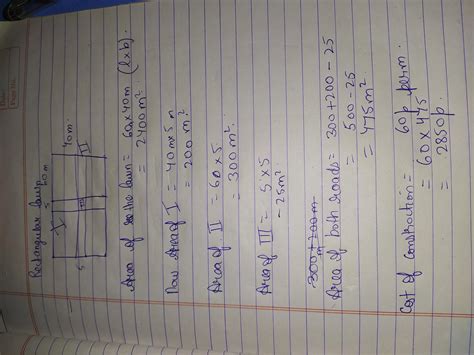 Rectangular lawn
60m
40m
I
II
III
5
5
Area of the lawn = 60x40m (lxb)
= 2400m²
Now Area of I = 40m x 5m
= 200m²
Area of II = 60x5
= 300m²
Area of III = 5x5
= 25m²
300+200m
Area of both roads = 300+200-25
= 500-25
= 475m²
Cost of construction = 60p per m.
= 60x475
= 2850p.